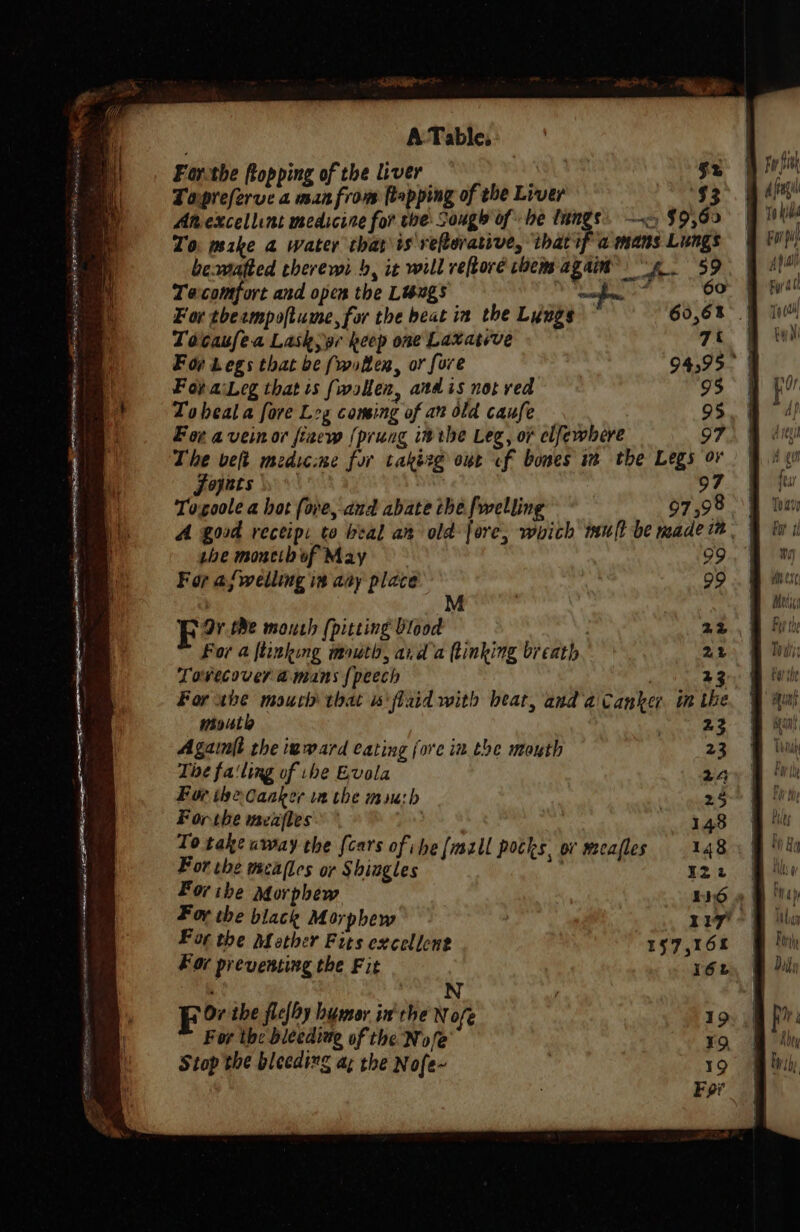 A Table.
For the ſtopping of the liver 52
To preſerve a man from ſtopping of the Liver 53
An excellent medicine for the Cough of the lungs 59,60
To make a water that is reſtorative, that if a mans Lungs
be waſted therewith, it will reſtore them again 59
To comfort and open the Lungs 60
For the impoſtume, for the heat in the Lungs 60,61
To cauſe a Lask, or keep one Laxative 71
For Legs that be ſwollen, or ſore 94,95
For a Leg that is ſwollen, and is not red 95
To heal a ſore Leg coming of an old cauſe 95
For a vein or ſinew ſprung in the Leg, or elſewhere 97
The beſt medicine for taking out of bones in the Legs or
Joynts 97
To coole a hot ſore, and abate the ſwelling 97,98
A good receipt to heal an old ſore, which muſt be made in
the moneth of May 99
For a ſwelling in any place 99
M
FOr the mouth ſpitting blood 22
For a ſtinking mouth, and a ſtinking breath 22
To recover a mans ſpeech 23
For the mouth that is flaid with heat, and a Canker in the
mouth 23
Againſt the inward eating ſore in the mouth 23
The falling of the Evola 24
For the Canker in the mouth 25
For the meaſles 148
To take away the ſcars of the ſmall pocks, or meaſles 148
For the meaſles or Shingles 122
For the Morphew 116
For the black Morphew 117
For the Mother Fits excellent 157,161
For preventing the Fit 162
N
FOr the fleſhy humor in the Noſe 19
For the bleeding of the Noſe 19
Stop the bleeding at the Noſe 19
For